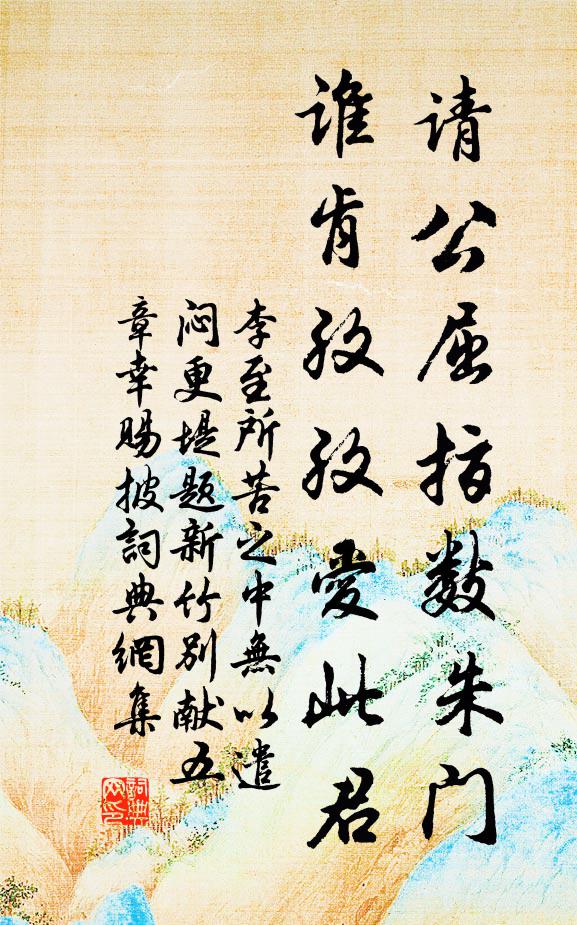 请公屈指数朱门
谁肯孜孜愛此君
李至所苦之中無以遣
闷更堤题新竹别献五
章幸赐披詞典網集
詞典网印